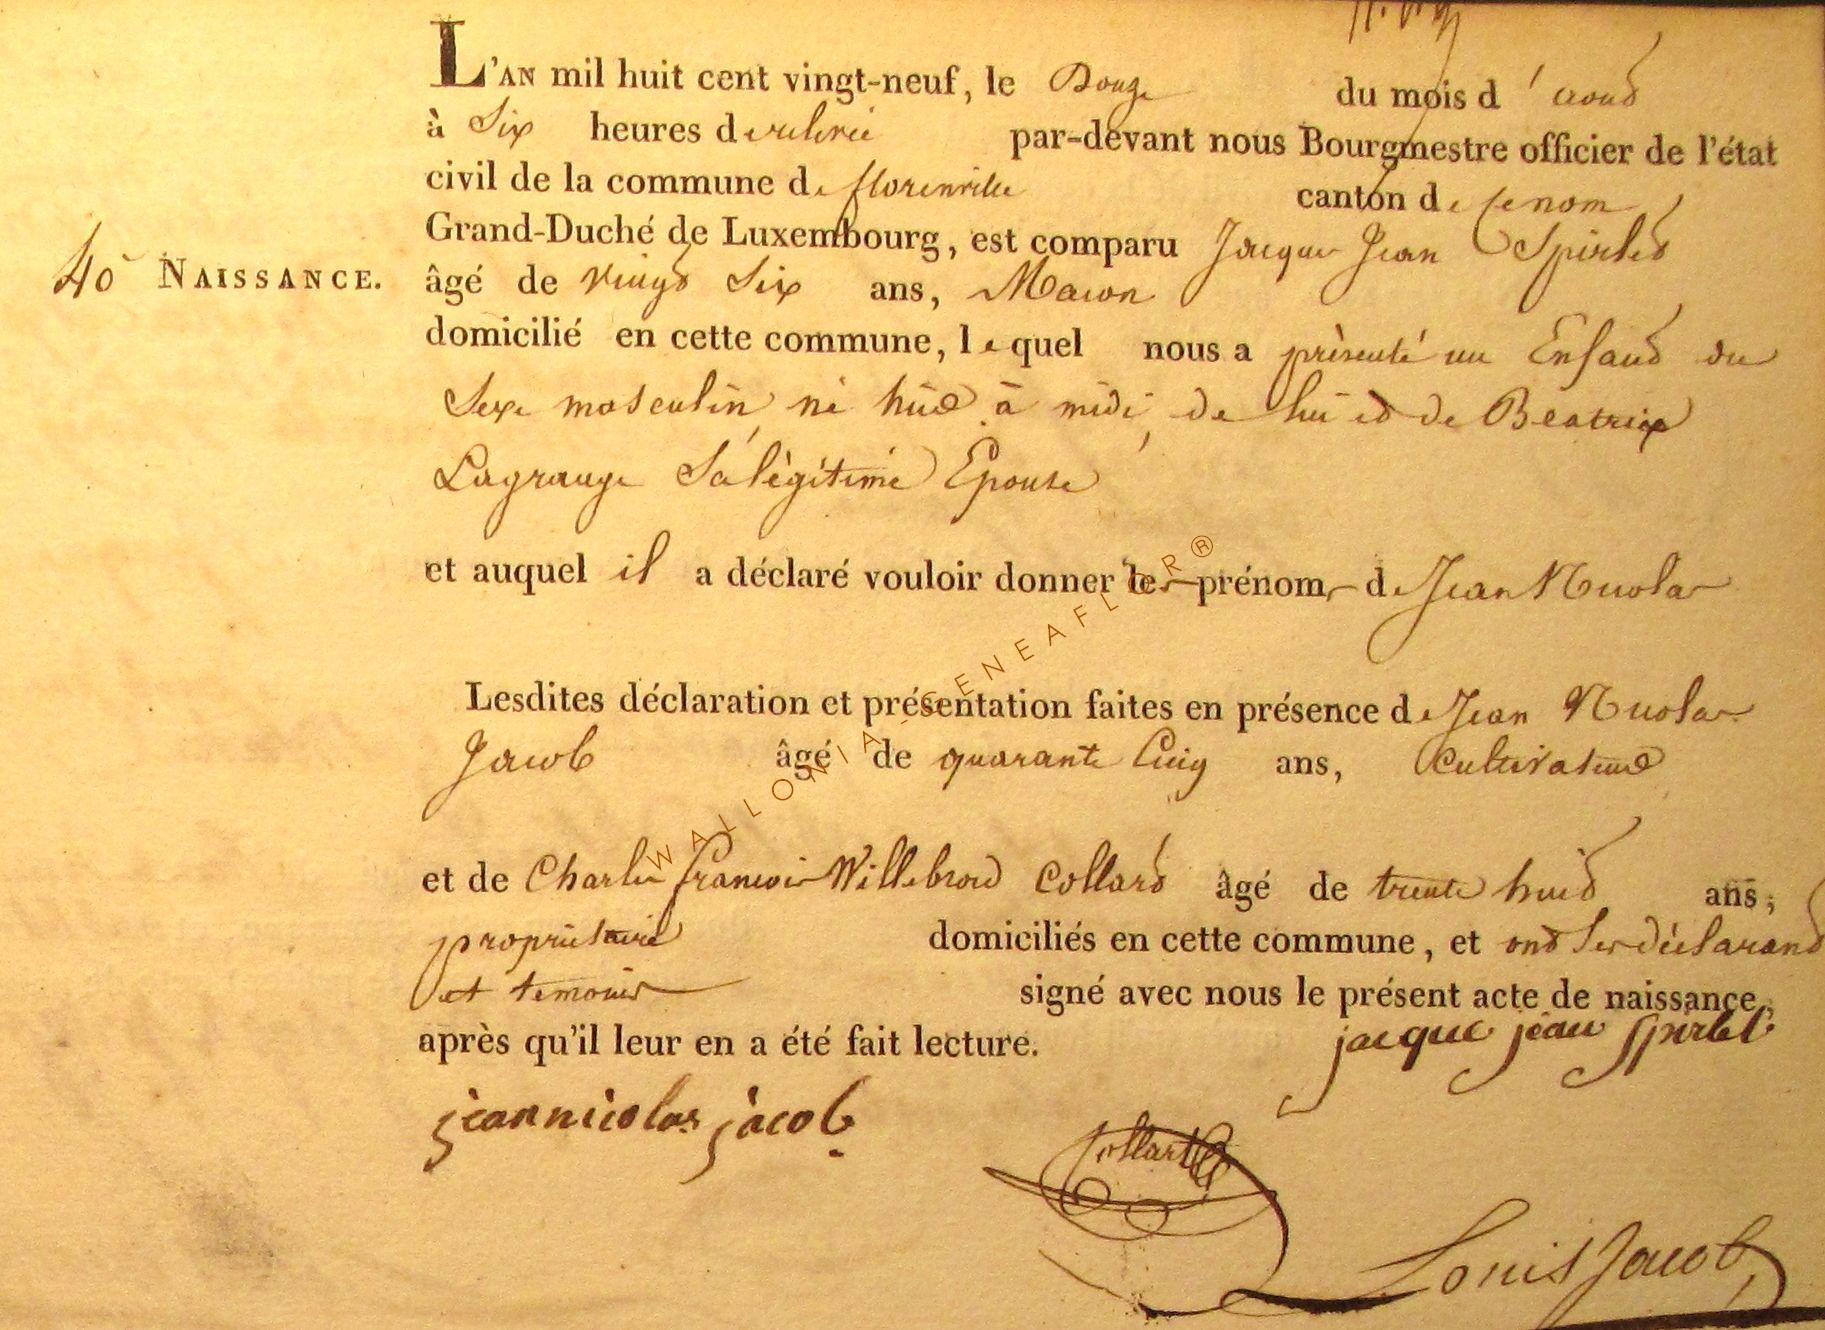 L'AN mil huit cent vingt-neuf, le Douze du mois d'aout
à Six heures de relevée par-devant nous Bourgmestre officier de l'état
civil de la commune de florenville canton de
Grand-Duché de Luxembourg, est comparu Jacque Jean Spirlet
40 NAISSANCE. âgé de vingt Six ans, Macon
domicilié en cette commune, lequel nous a présenté un Enfant du
Sexe masculin, né hui à midi, de lui et de Beatrix
Lagrange Sa légitime Epouse
et auquel il a déclaré vouloir donner les prénoms de Jean Nicolas
Lesdites déclaration et présentation faites en présence de Jean Nicolas
Jacob âgé de quarante Cinq ans, Cultivateur
et de Charles francois Willebrord Collard âgé de trente huit ans,
propriétaire domiciliés en cette commune, et ont les déclarant
et temoins signé avec nous le présent acte de naissance,
après qu'il leur en a été fait lecture.
jacque jean Spirlet
jean nicolas jacob
Collart
Louis Jacob
WALLONIA GENEAFLOR®